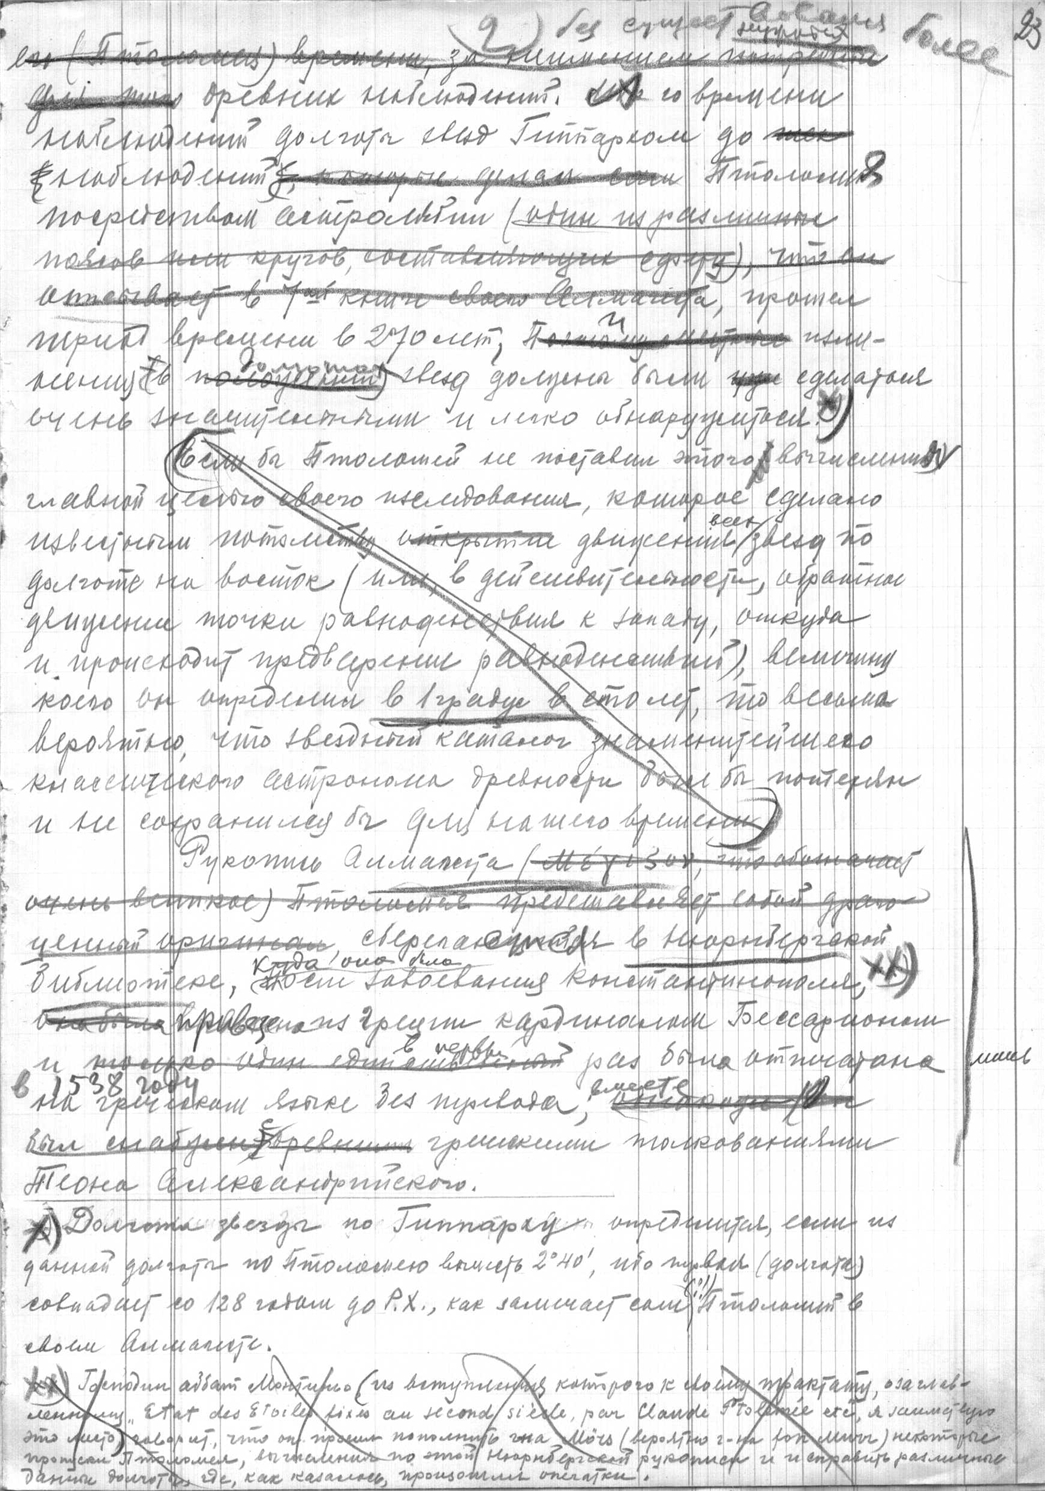 9) без существования более 23
его (Птоломея) времени, за неимением
для того древних наблюдений. со времени
наблюдений долготы звезд Гиппархом до
наблюдений, которые делал сам Птоломея
посредством Астролябии (один из различных
поясов или кругов, составляющих сферу), что он
описывает в 7ой книге своего Алмагеста, прошел
период времени в 270 лет, и изме-
нения в долготах звезд должны были сделаться
очень значительными и легко обнаружиться. х)
Если бы Птоломей не поставил этого вычисления
главной целью своего изследования, которое сделало
известным потомству открытие движения всех звезд по
долготе на восток (или, в действительности, обратное
движение точки равноденствия к западу, откуда
и происходит предварение равноденствий), величину
коего он определил в 1 градус в сто лет, то весьма
вероятно, что звездный каталог знаменитейшего
классического астронома древности был бы потерян
и не сохранился бы для нашего времени
Рукопись Алмагеста (что обозначает
очень великое) Птоломея представляет собой драго-
ценный оригинал, в Нюрнбергской
библиотеке, куда она была после завоевания Константинополя, хх)
она была из Греции кардиналом Бессарионом
и только один единственный в первый раз была отпечатана
в 1538 году
на греческом языке без перевода, вместе
был снабжен с древними греческими толкованиями
Теона Александрийского.
х) Долгота звезды по Гиппарху определится, если из
данной долготы по Птоломею вычесть 2°40', ибо первая (долгота)
совпадает со 128 годом до Р.Х., как замечает сам (!) Птоломей в
своем Алмагесте.
хх) Господин аббат Монтиньо (из вступления которого к своему трактату, озаглав-
ленному „Etat des Etoiles fixes au second siècle, par Claude Ptolemée etc, я заимствую
это место) говорит, что он просил пополнить г-на (вероятно г-на фон ) некоторые
пропуски Птоломея, вычисления по этой Нюрнбергской рукописи и исправить различные
данные долготы, где, как казалось, произошли опечатки.